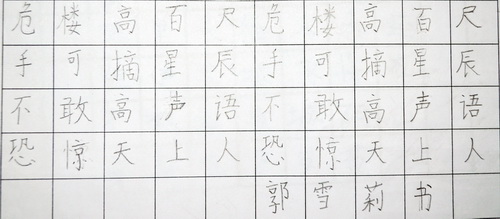 危楼高百尺危楼高百尺
手可摘星辰手可摘星辰
不敢高声语不敢高声语
恐惊天上人恐惊天上人
郭雪莉书